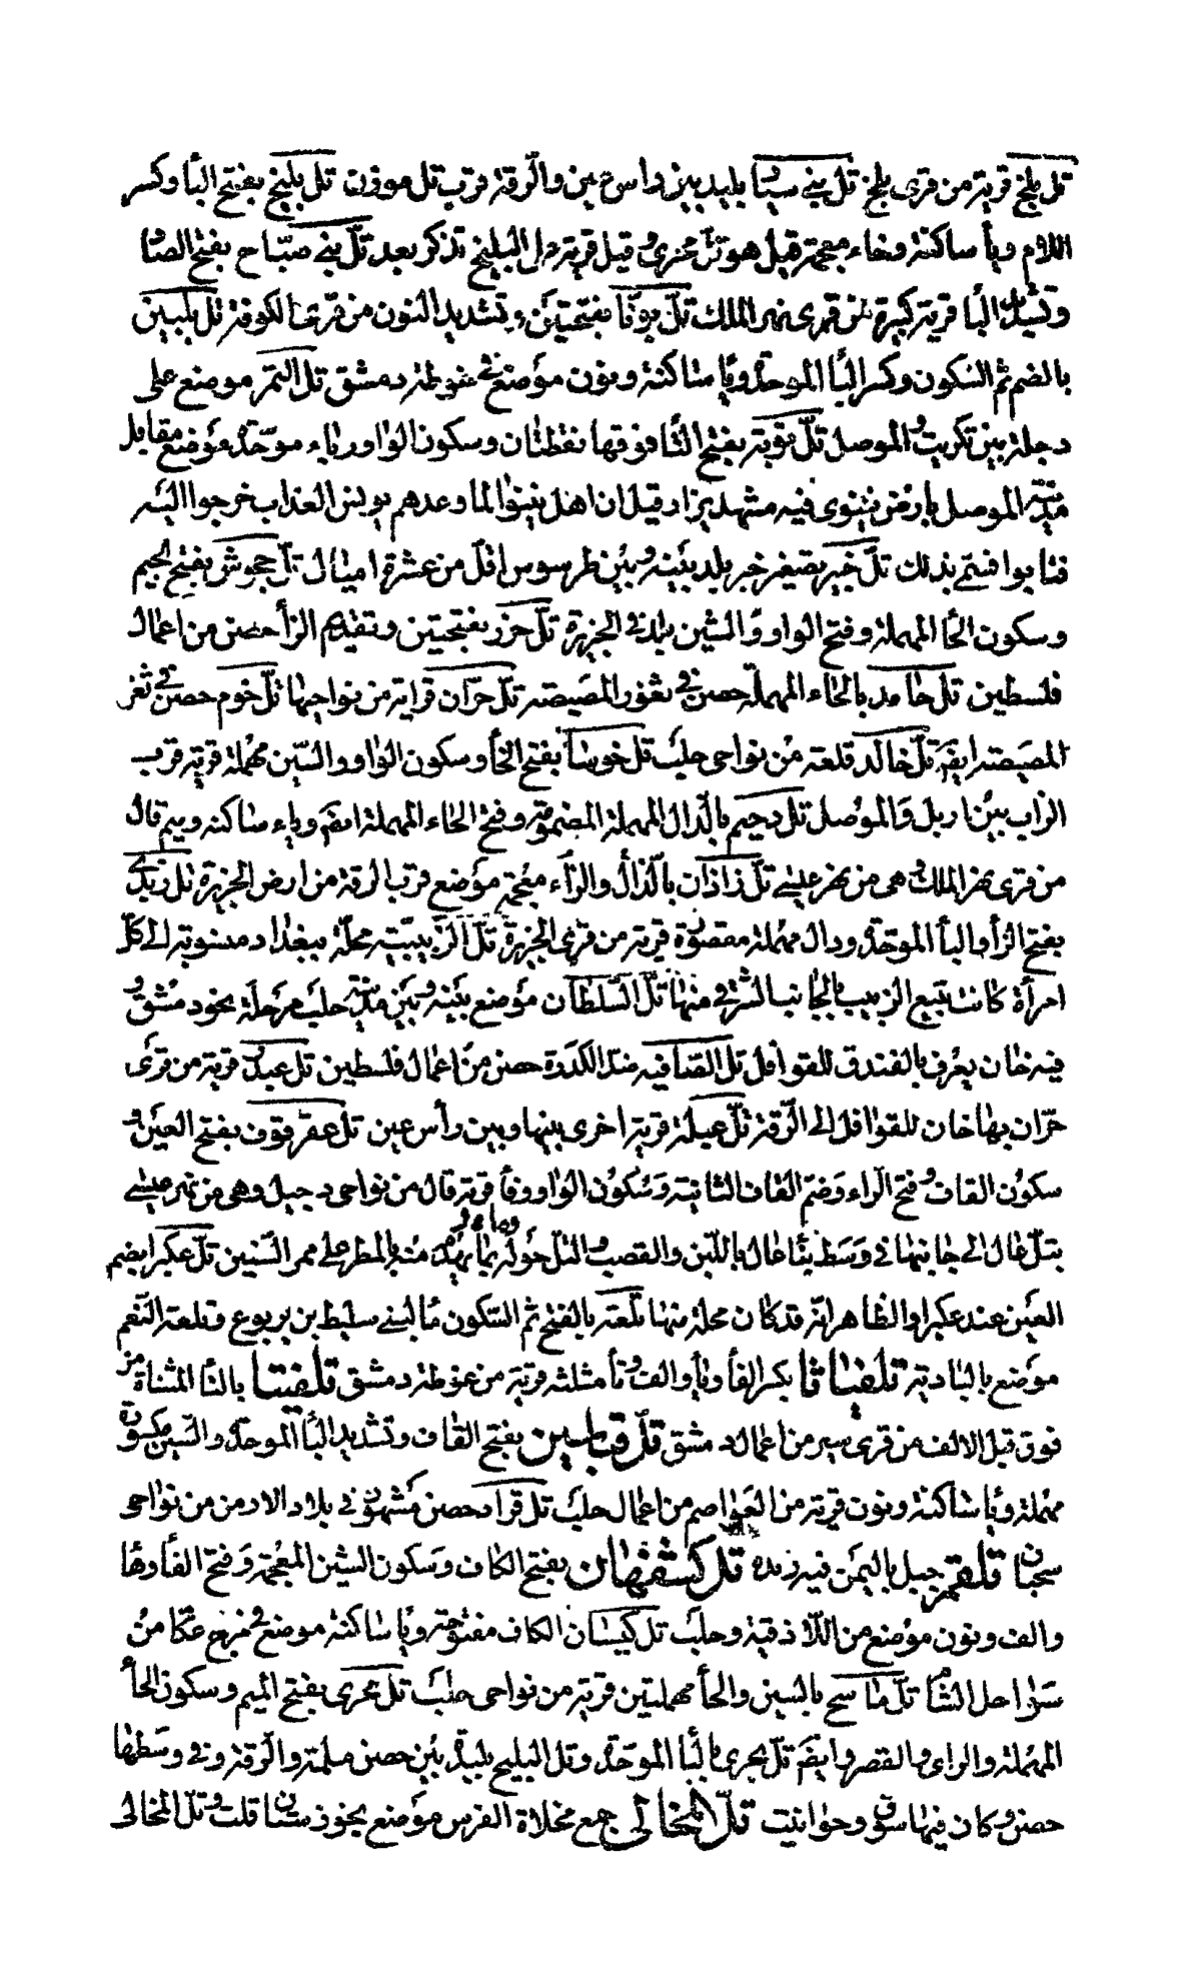 تل بلخ قرية من قرى بلخ تل بني سيار بليد بين راس عين والرقة قرب تل موزن تل بليخ بفتح البا وكسر
اللام ويا ساكنة وخاء معجمة قيل هو تل محرى وقيل قرية على البليخ تذكر بعد تل بني صباح بفتح الصاد
وتشديد البا قرية كبيرة من قرى نهر الملك تل بونا بفتحتين وتشديد النون من قرى الكوفة تل بلبين
بالضم ثم السكون وكسر البا الموحدة ويا ساكنة ونون موضع في غوطة دمشق تل التمر موضع على
دجلة بين تكريت والموصل تل توبة بفتح التا فوقها نقطتان وسكون الواو وباء موحدة موضع مقابل
مدينة الموصل بارض نينوى فيه مشهد يزار وقيل ان اهل نينوا لما وعدهم يونس العذاب خرجوا اليه
فتابوا فسمي بذلك تل جبير تصغير جبر بلد بينه وبين طرسوس اقل من عشرة اميال تل جحوش بفتح الجيم
وسكون الحا المهملة وفتح الواو والشين بلد في الجزيرة تل جزر بفتحتين وتقديم الزا حصن من اعمال
فلسطين تل حامد بالحاء المهملة حصن في ثغور المصيصة تل حران قراية من نواحيها تل خوم حصن في ثغر
المصيصة ايضم تل خالد قلعة من نواحي حلب تل خوسا بفتح الخا وسكون الواو والسين مهملة قرية قرب
الزاب بين اربل والموصل تل دحيم بالدال المهملة المضمومة وفتح الحاء المهملة ايضم وياء ساكنه وميم قال
من قرى نهر الملك وهي من نهر عيسى تل زاذان بالذال والزاء معجمة موضع قرب الرقة من ارض الجزيرة تل زبدى
بفتح الزا والبا الموحدة ودال مهملة مقصورة قرية من قرى الجزيرة تل الزبيبية محلة ببغداد منسوبة الى كل
امرأة كانت تبيع الزبيب بالجانب الشرقي منها تل السلطان موضع بينه وبين مدينة حلب مرحلة نحو دمشق و
فيه خان يعرف بالفندق للقوافل تل الصافية ضد الكدرة حصن من اعمال فلسطين تل عبدة قرية من قرى
حران بها خان للقوافل الى الرقة تل عبلة قرية اخرى بينها وبين رأس عين تل عقرقوف بفتح العين و
سكون القاف وفتح الراء وضم القاف الثانية وسكون الواو وفا قرية قال من نواحي دجيل وهي من نهر عيسى
بتل عال الى جانبها في وسط بنا عال باللبن والقصب والتل حوله بما يهدم منه بالمطر على ممر السنين تل عكبرا بضم
العين عند عكبرا والظاهر انه قد كان محلة منها تلعة بالفتح ثم السكون ما لبني سليط بن يربوع وتلعة النعم
موضع بالبادية تلفياثا بكسر الفا ويا والف وثا مثلثه قرية من غوطة دمشق تلفيتا بالتا المثناة من
فوق قبل الالف من قرى سير من اعمال دمشق تل قباسين بفتح القاف وتشديد البا الموحدة والسين مكسورة
مهملة ويا ساكنة ونون قرية من العواصم من اعمال حلب تل قراد حصن مشهور في بلاد الارمن من نواحي
سحبان تلقم جبل باليمن فيه تل كشفهان بفتح الكاف وسكون الشين المعجمة وفتح الفا وها
والف ونون موضع من اللاذقية وحلب تل كيسان الكاف مفتوحة ويا ساكنة موضع في مرج عكا من
سواحل الشام تل ماسح بالسين والحا مهملتين قرية من نواحي حلب تل محرى بفتح الميم وسكون الحا
المهملة والراى والقصر وايضم تل بحرى بالبا الموحدة وتل البليح بليد بين حصن مسلمة والرقة وفي وسطها
حصن وكان فيها سوق وحوانيت تل المخالى جمع مخلاة الفرس موضع بخوزستان قلت وتل المخالى